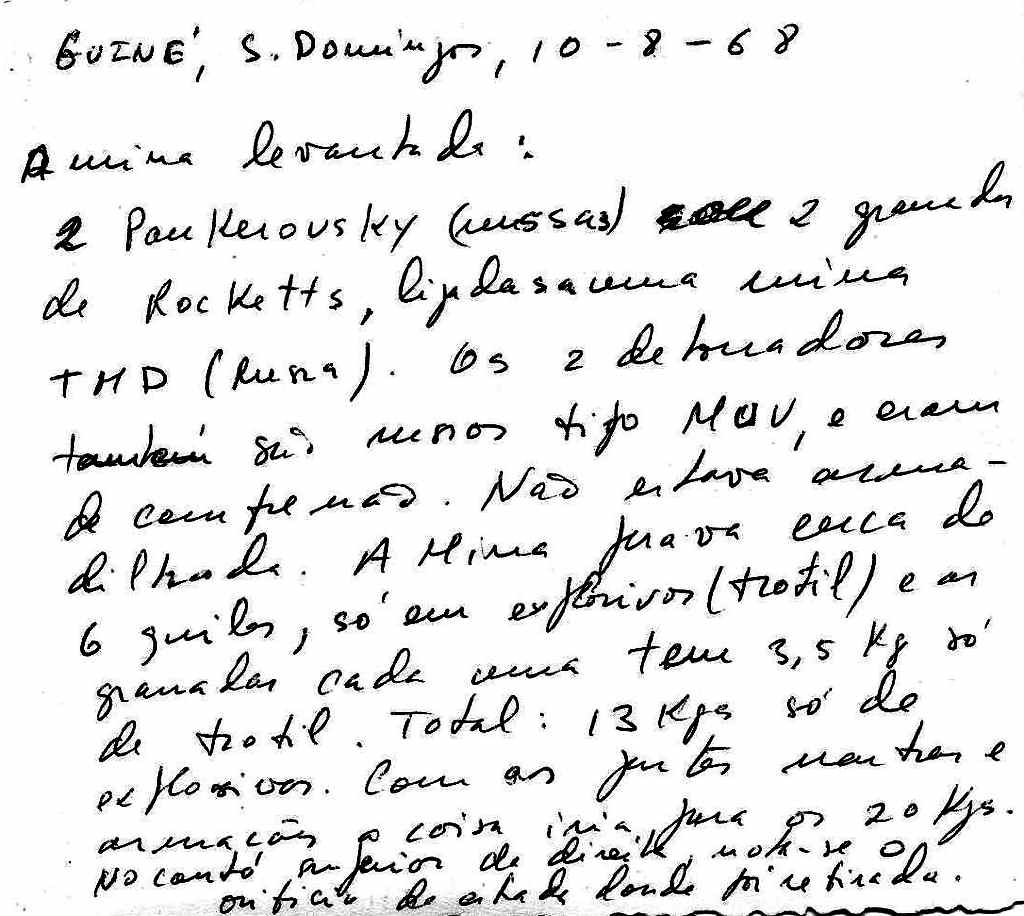 GUINÉ, S. Domingos, 10-8-68
A mina levantada:
2 Pankerovsky (russas) 2 granadas
de Rocketts, ligadas a uma mina
TMD (Russa). Os 2 detonadores
também são russos tipo MUV, e eram
de compressão. Não estava arma-
dilhada. A Mina pesava cerca de
6 quilos, só em explosivos (trotil) e as
granadas cada uma tem 3,5 Kg só
de trotil. Total: 13 Kgs só de
explosivos. Com as partes
armações a coisa iria para os 20 Kgs.
No canto superior da direita, nota-se o
orifício da estrada donde foi retirada.